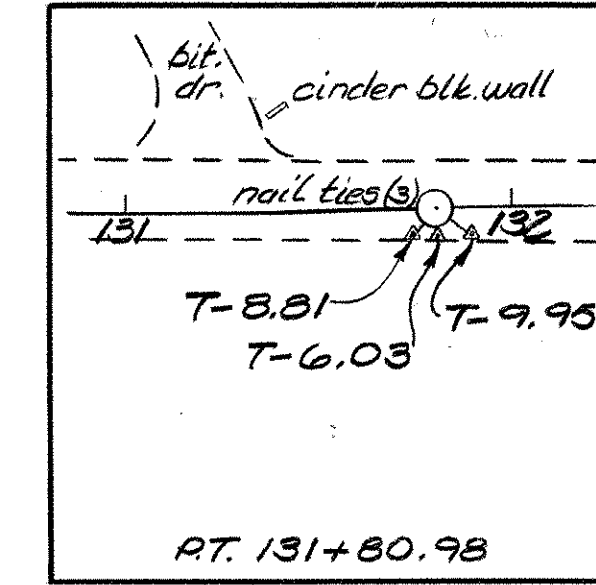 bit.
dr.
cinder blk. wall
nail ties (3)
131
132
T-8.81
T-9.95
T-6.03
P.T. 131+80.98